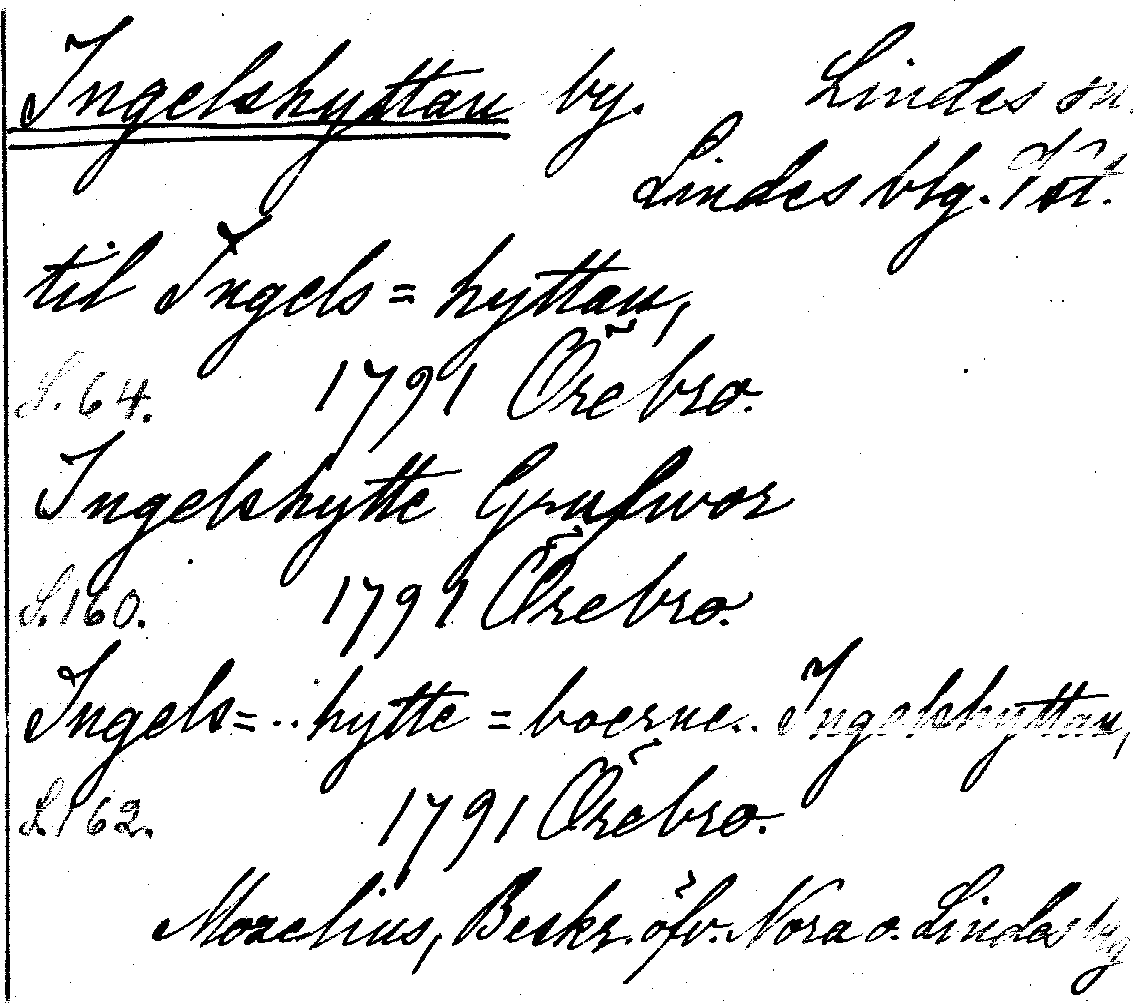 Ingelshyttan by. Lindes sn.
Lindes blg. Vst.
til Ingels = hyttan,
S. 64. 1791 Örebro.
Ingelshytte Grufwor
S. 160. 1791 Örebro.
Ingels= .. hytte = boerne.. Ingelshyttan,
S. 162. 1791 Örebro.
Morelius, Beskr. öfv. Nora o. Lindes blg